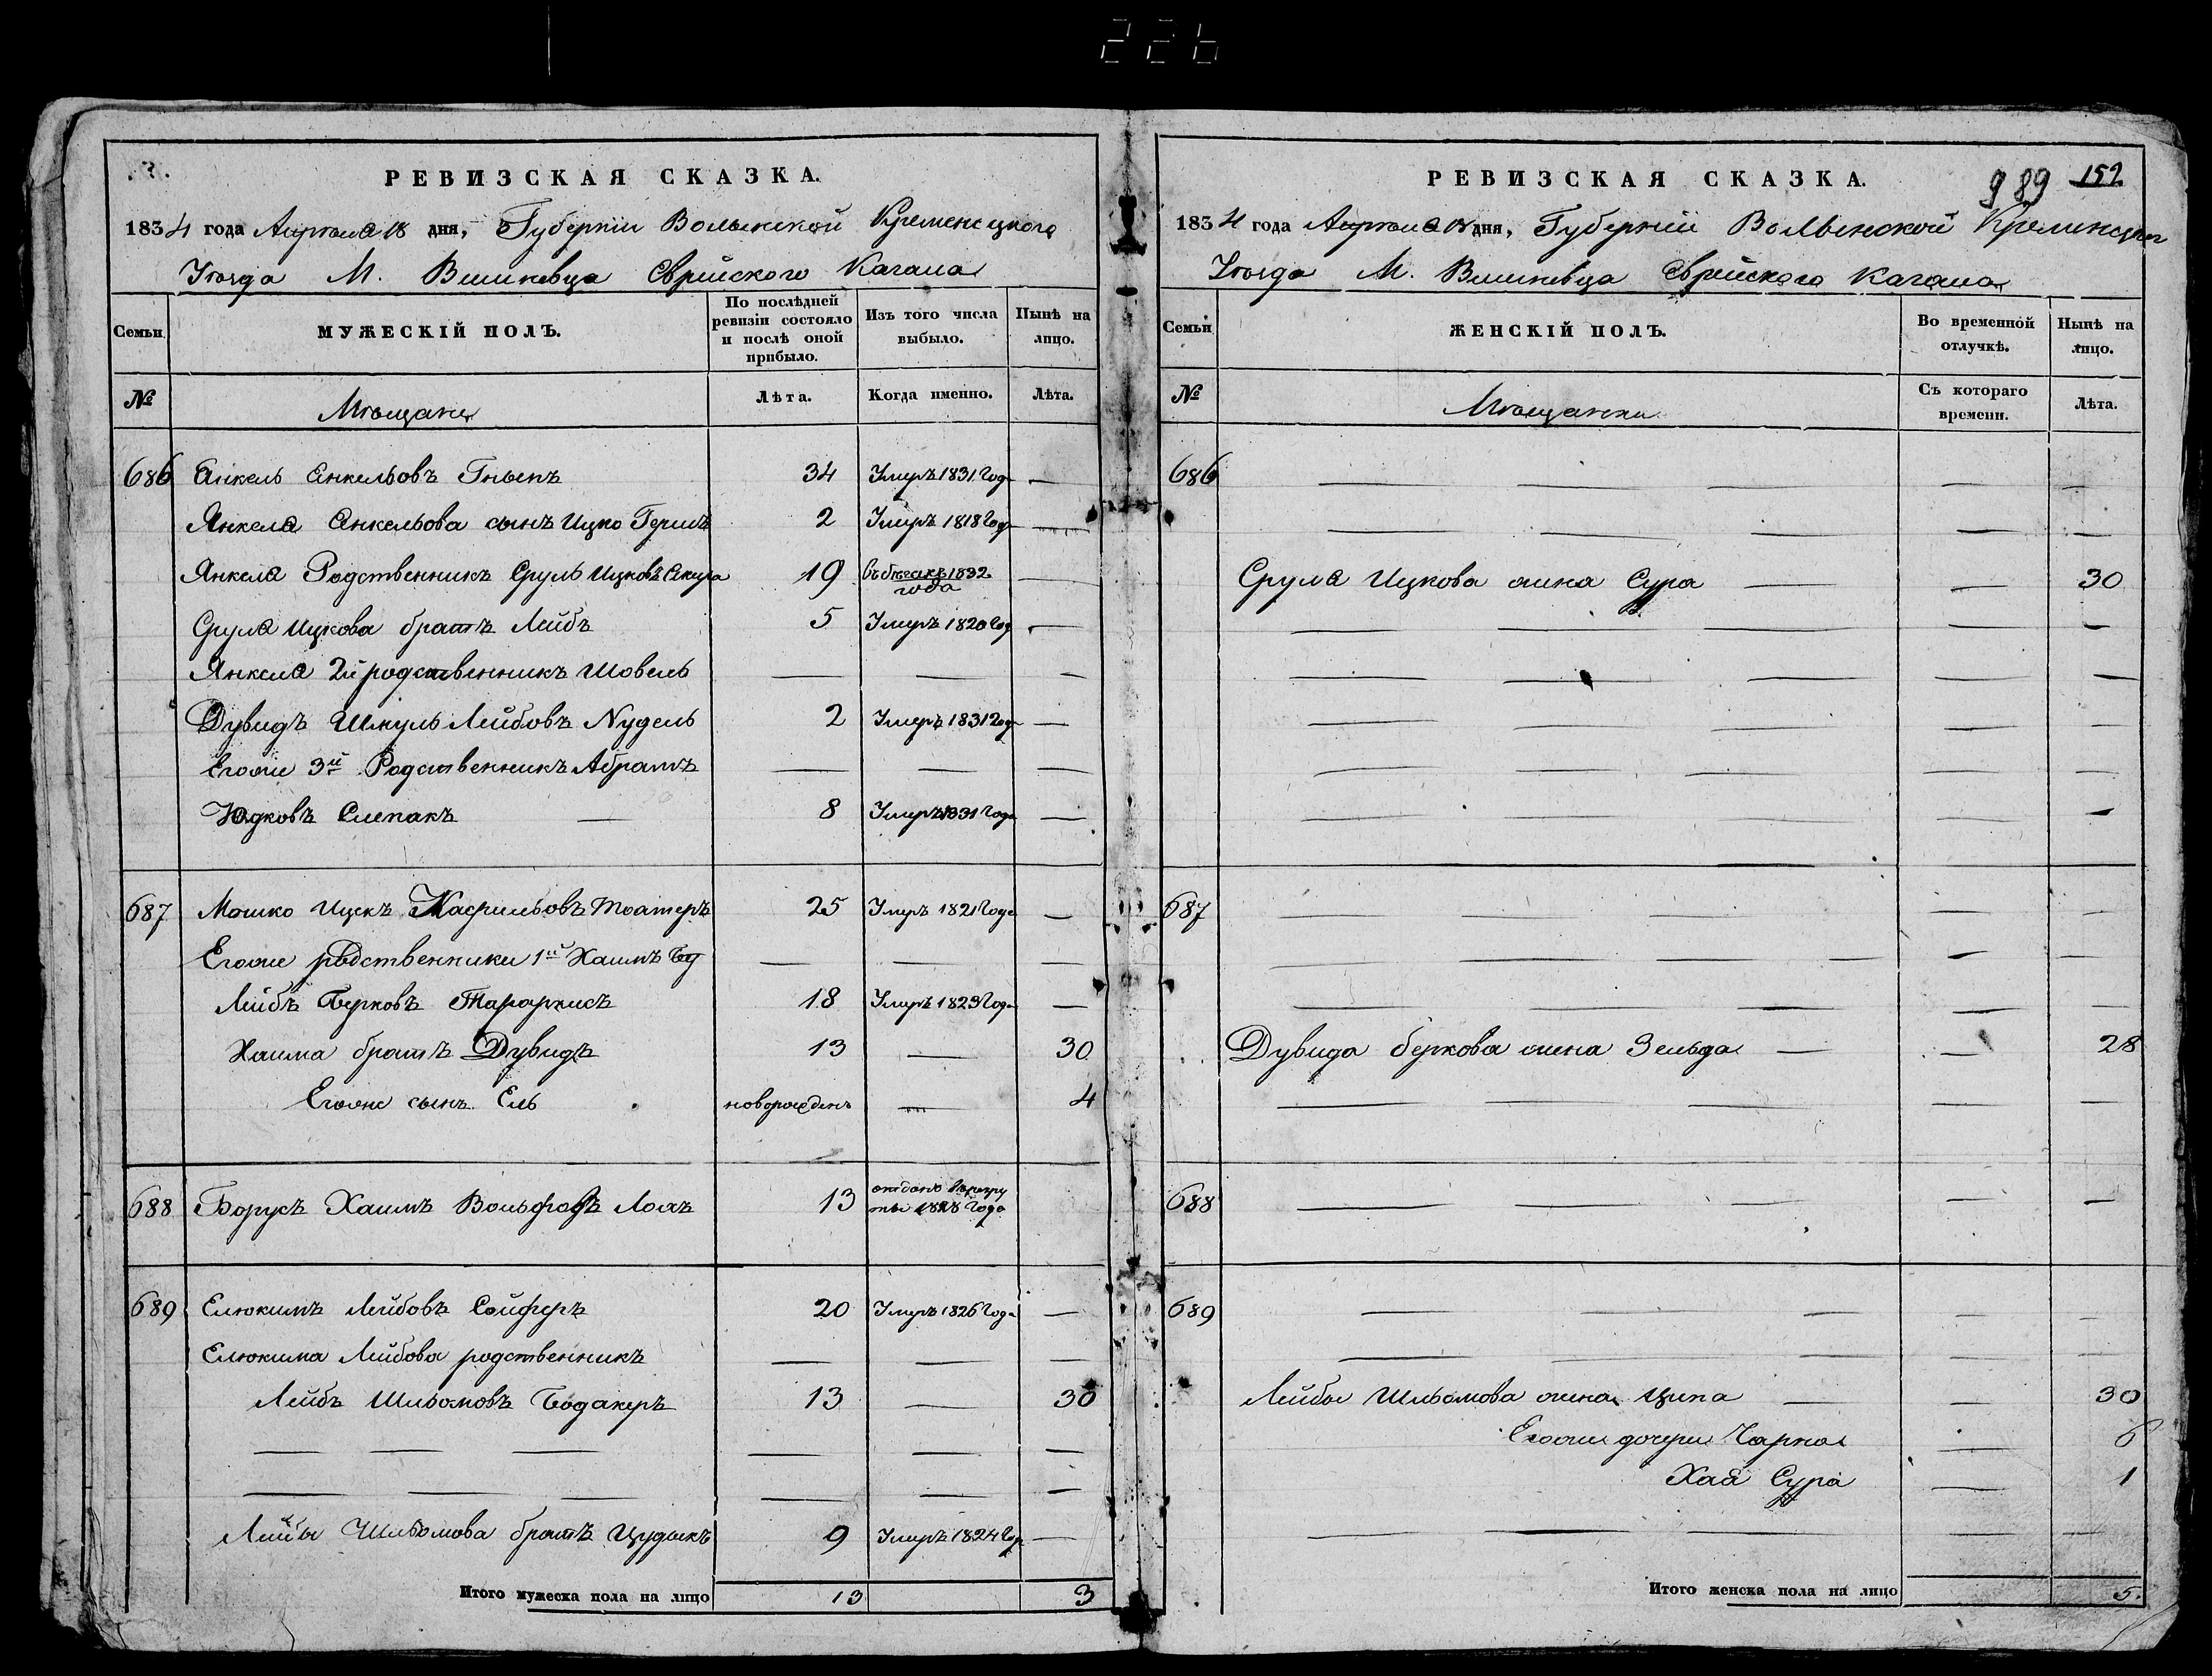 226
РЕВИЗСКАЯ СКАЗКА.
1834 года Апреля 18 дня, Губернии Волынской Кременецкого
Уезда М. Вишневца Еврейского Кагала
Семьи
МУЖЕСКІЙ ПОЛЪ.
По послѣдней ревизіи состояло и послѣ оной прибыло.
Изъ того числа выбыло.
Нынѣ на лицо.
№
Мѣщане
Лѣта.
Когда именно.
Лѣта.
686 Янкель Янкельовъ 34 Умеръ 1831 Года —
Янкеля Янкельова сынъ Ицко Гершъ 2 Умеръ 1818 Года —
Янкеля Родственникъ Сруль Ицковъ 19 въ бегахъ 1832 года —
Сруля Ицкова братъ Лейбъ 5 Умеръ 1820 Год —
Янкеля 2й родственникъ Шовель — — —
Дувидъ Шмуль Лейбовъ Нудель 2 Умеръ 1831 Год —
Егоже 3й Родственникъ Абрамъ — — —
Юдковъ Слепакъ — 8 Умеръ 1831 Года —
687 Мошко Ицекъ Касрильовъ 25 Умеръ 1821 Года —
Егоже родственники 1й Хаимъ — — —
Лейбъ Берковъ 18 Умеръ 1823 Года —
Хаима братъ Дувидъ 13 — 30
Егоже сынъ Ель новорожденъ — 4
688 Борухъ Хаимъ Вольфовъ 13 отданъ в рекруты 1828 Года
689 Елюкимъ Лейбовъ Сойферъ 20 Умеръ 1826 Года —
Елюкима Лейбова родственникъ — — —
Лейбъ Шльомовъ Бодакеръ 13 — 30
— — — — — —
— — — — — —
Лейбы Шльомова братъ 9 Умеръ 1824 Год —
Итого мужеска пола на лицо 13 3
РЕВИЗСКАЯ СКАЗКА.
989 152
1834 года Апреля 18 дня, Губерніи Волынской Кременецкого
Уезда М. Вишневца Еврейского Кагала
Семьи
ЖЕНСКІЙ ПОЛЪ.
Во временной отлучкѣ.
Нынѣ на лицо.
№
Мѣщанки
Съ котораго времени.
Лѣта.
686 — — — — —
— — — — —
Сруля Ицкова жена Сура — — 30
— — — — —
— — — — —
— — — — —
— — — — —
— — — — —
687 — — — — —
— — — — — —
— — — — —
Дувида Беркова жена Зельда — — 28
— — — — —
688 — — — — —
689 — — — — —
— — — — —
Лейбы Шльомова жена Ципа — — 30
Егоже дочери Чарна — 6
Хая Сура — 1
— — — — —
Итого женска пола на лицо 5.